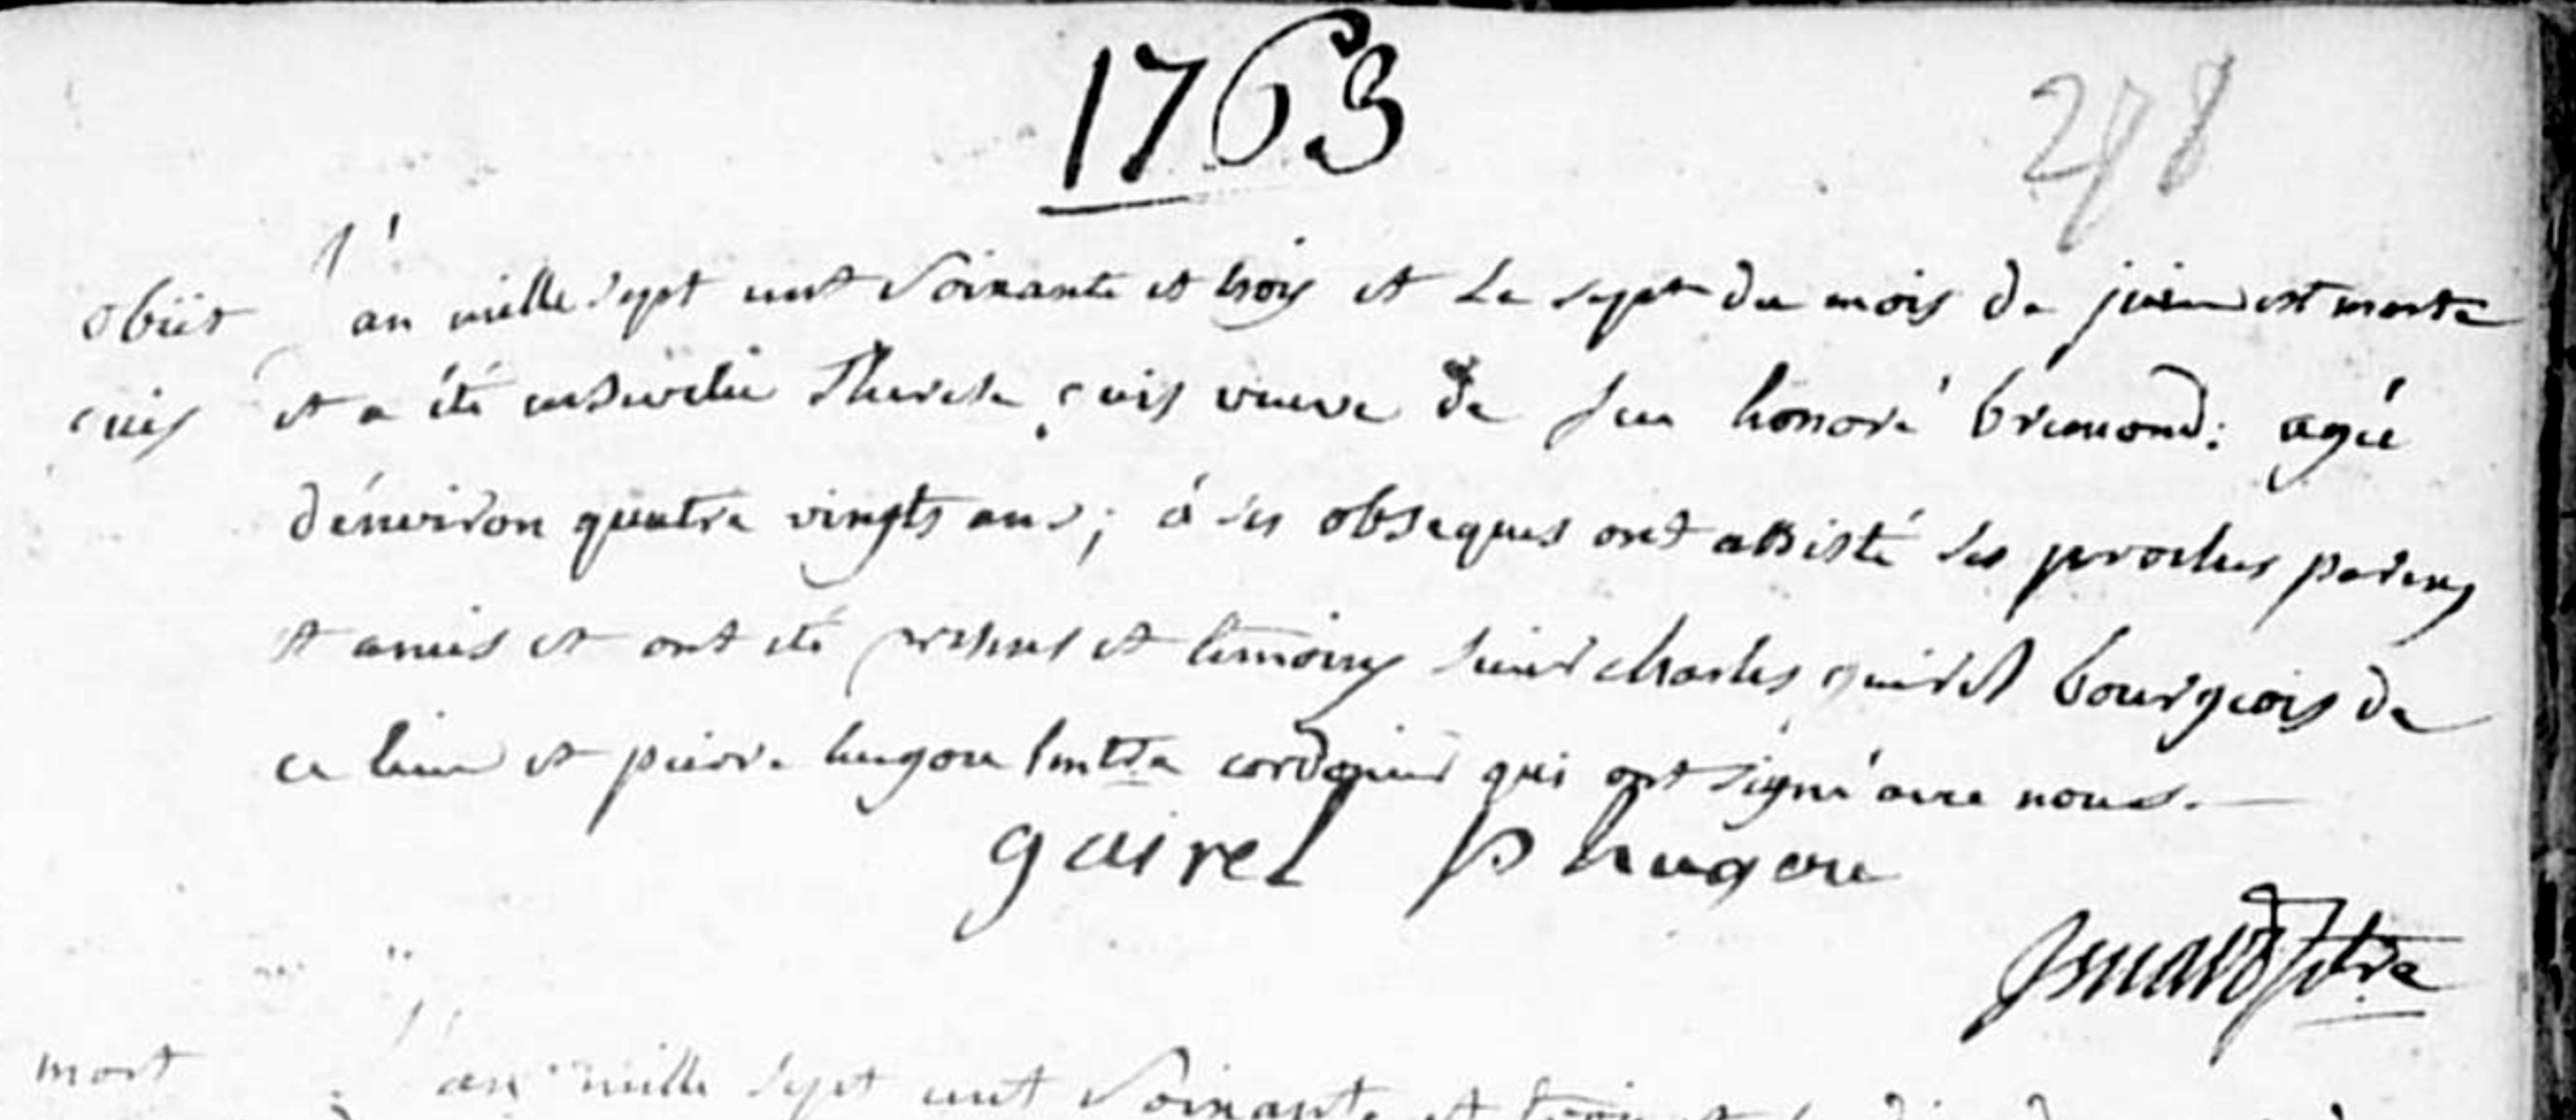 1763
278
obiit l'an mille sept cent soixante et trois et le sept du mois de juin est morte
cuis et a été ensevelie Therese cuis veuve de feu honoré bremond: agée
d'environ quatre vingts ans; à ses obseques ont assisté ses proches parens
et amis et ont été presens et temoins sieur charles guiret bourgeois de
ce lieu et pierre hugou cordonier qui ont signé avec nous.
guiret P hugou
Isnard ptre
mort l'an mille sept cent soixante et trois et